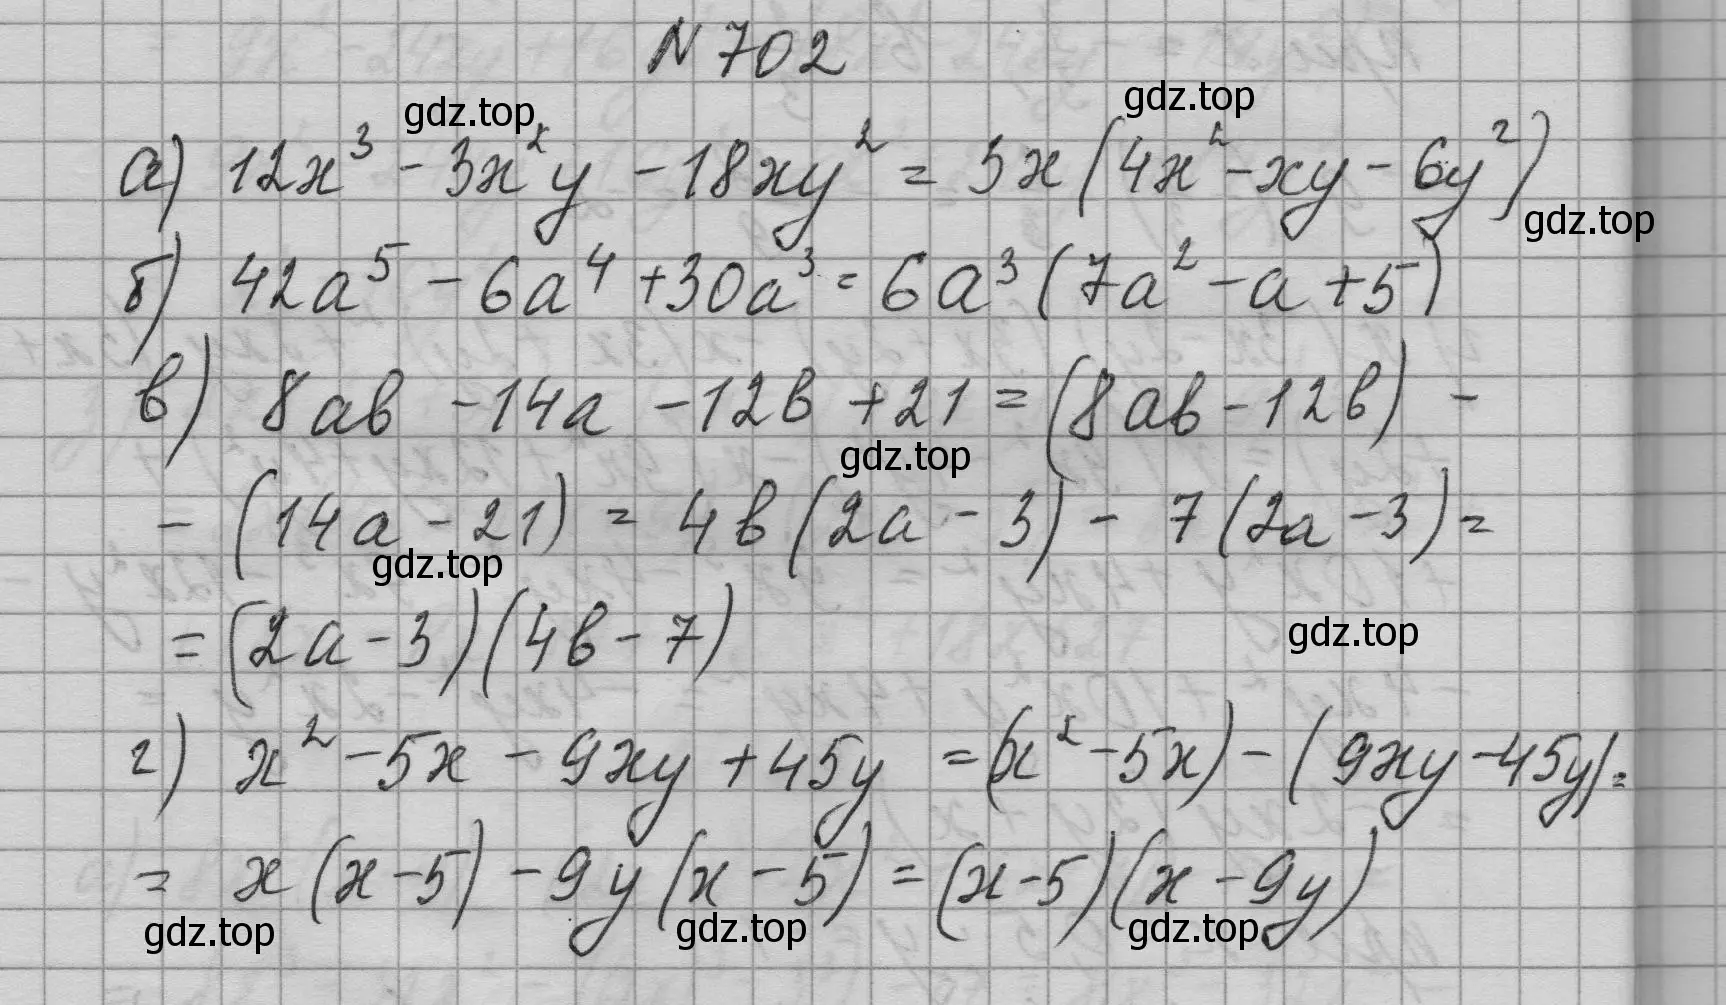 N 702
gdz.top
gdz.top
а) 12x³ - 3x²y - 18xy² = 3x(4x² - xy - 6y²)
gdz.top
б) 42a⁵ - 6a⁴ + 30a³ = 6a³(7a² - a + 5)
в) 8ab - 14a - 12b + 21 = (8ab - 12b) -
gdz.top
- (14a - 21) = 4b(2a - 3) - 7(2a - 3) =
gdz.top
= (2a - 3)(4b - 7)
gdz.top
г) x² - 5x - 9xy + 45y = (x² - 5x) - (9xy - 45y) =
= x(x - 5) - 9y(x - 5) = (x - 5)(x - 9y)
gdz.top
gdz.top
gdz.top